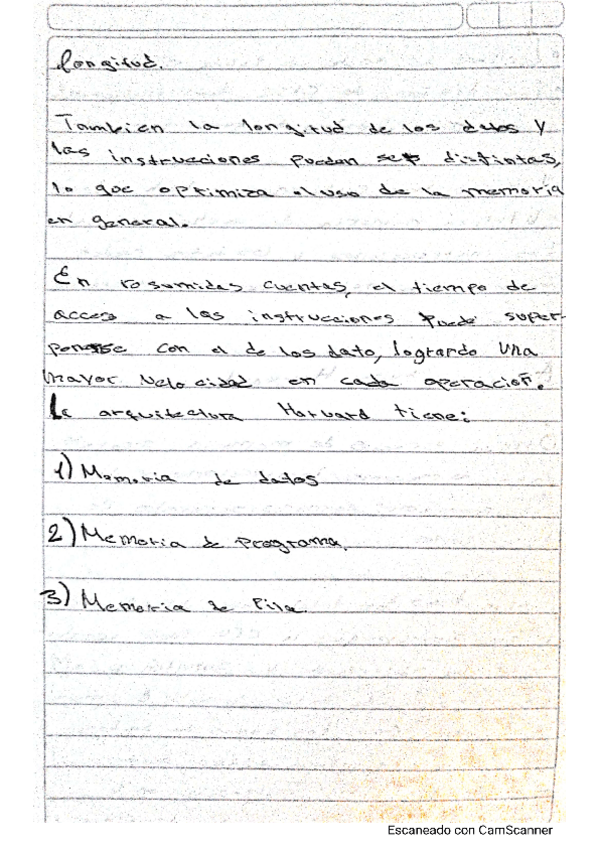 longitud.
Tambien la longitud de los datos y
las instrucciones puedan ser distintas,
lo que optimiza el uso de la memoria
en general.
En resumidas cuentas, el tiempo de
acceso a las instrucciones puede super-
ponerse con el de los dato, logrando una
mayor velocidad en cada operación.
La arquitectura Harvard tiene:
1) Memoria de datos
2) Memoria de programa.
3) Memoria de Pila.
Escaneado con CamScanner